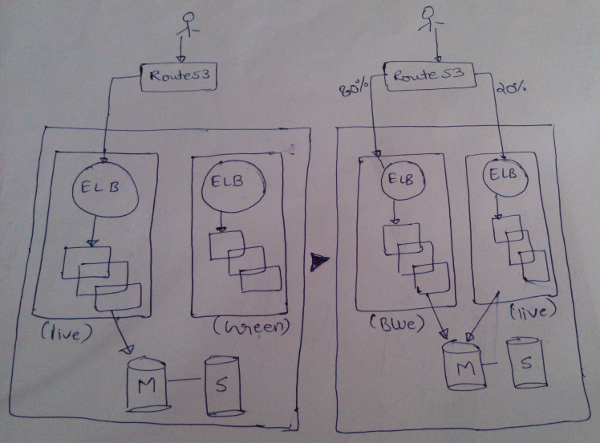 Route53
ELB
ELB
(live)
(Green)
M
S
Route53
80%
20%
ELB
ELB
(Blue)
(live)
M
S